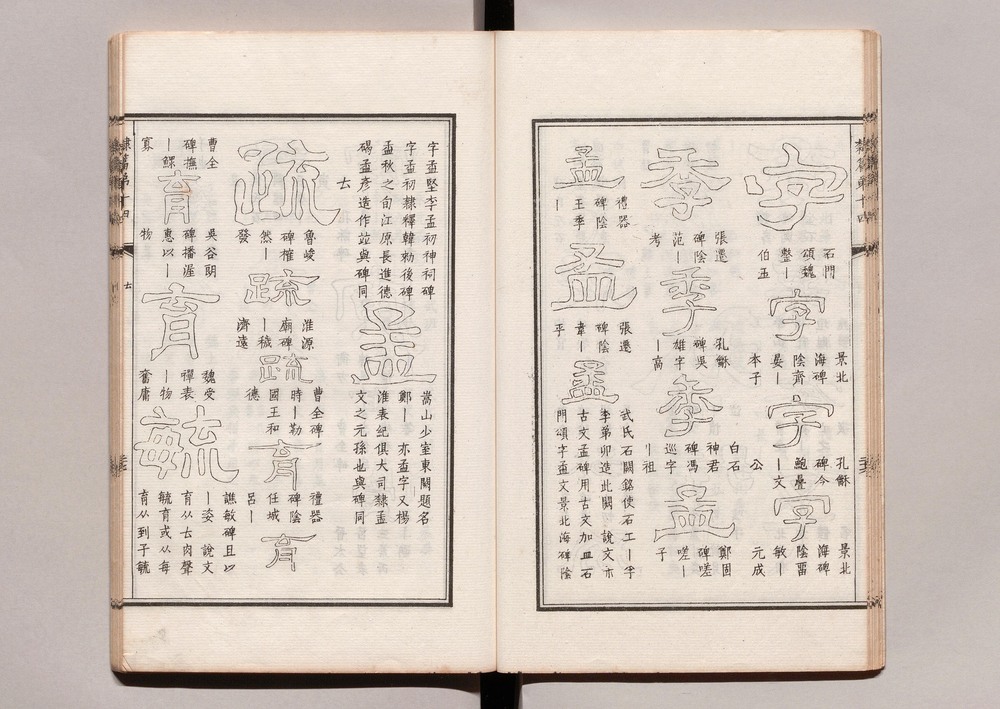 字
石門
頌魏
整丨
伯玉
字
景北
海碑
陰齊
晏丨
本子
字
孔龢
碑今
鮑疊
丨文
公
字
景北
海碑
陰畱
敏丨
元成
季
張遷
碑陰
范丨
考
季
孔龢
碑吳
雄字
丨高
季
白石
神君
碑馮
巡字
丨祖
孟
鄭固
碑嗟
嗟丨
子
孟
禮器
碑陰
王季
丨
孟
張遷
碑陰
韋丨
平
孟
武氏石闕銘使石工丨孚
李弟卯造此闕 說文亦
古文孟碑用古文加皿石
門頌字孟文景北海碑陰
字孟堅李孟初神祠碑
字孟初隸釋韓勑後碑
孟秋之旬江原長進德
碣孟彥造作竝與碑同
孟
嵩山少室東闕題名
鄭丨 亦孟字又楊
淮表紀俱大司隸孟
文之元孫也與碑同
𠫓
疏
魯峻
碑榷
然丨
發
疏
淮源
廟碑
丨穢
濟遠
疏
曹全碑
時丨勒
國王和
德
育
禮器
碑陰
任城
呂丨
育
曹全
碑撫
丨鰥
寡
育
吳谷朗
碑播渥
惠以丨
物
育
魏受
禪表
丨物
奮庸
毓
譙敏碑且以
丨姿 說文
育从𠫓肉聲
毓育或从每
育从到子毓
隸篇第十四